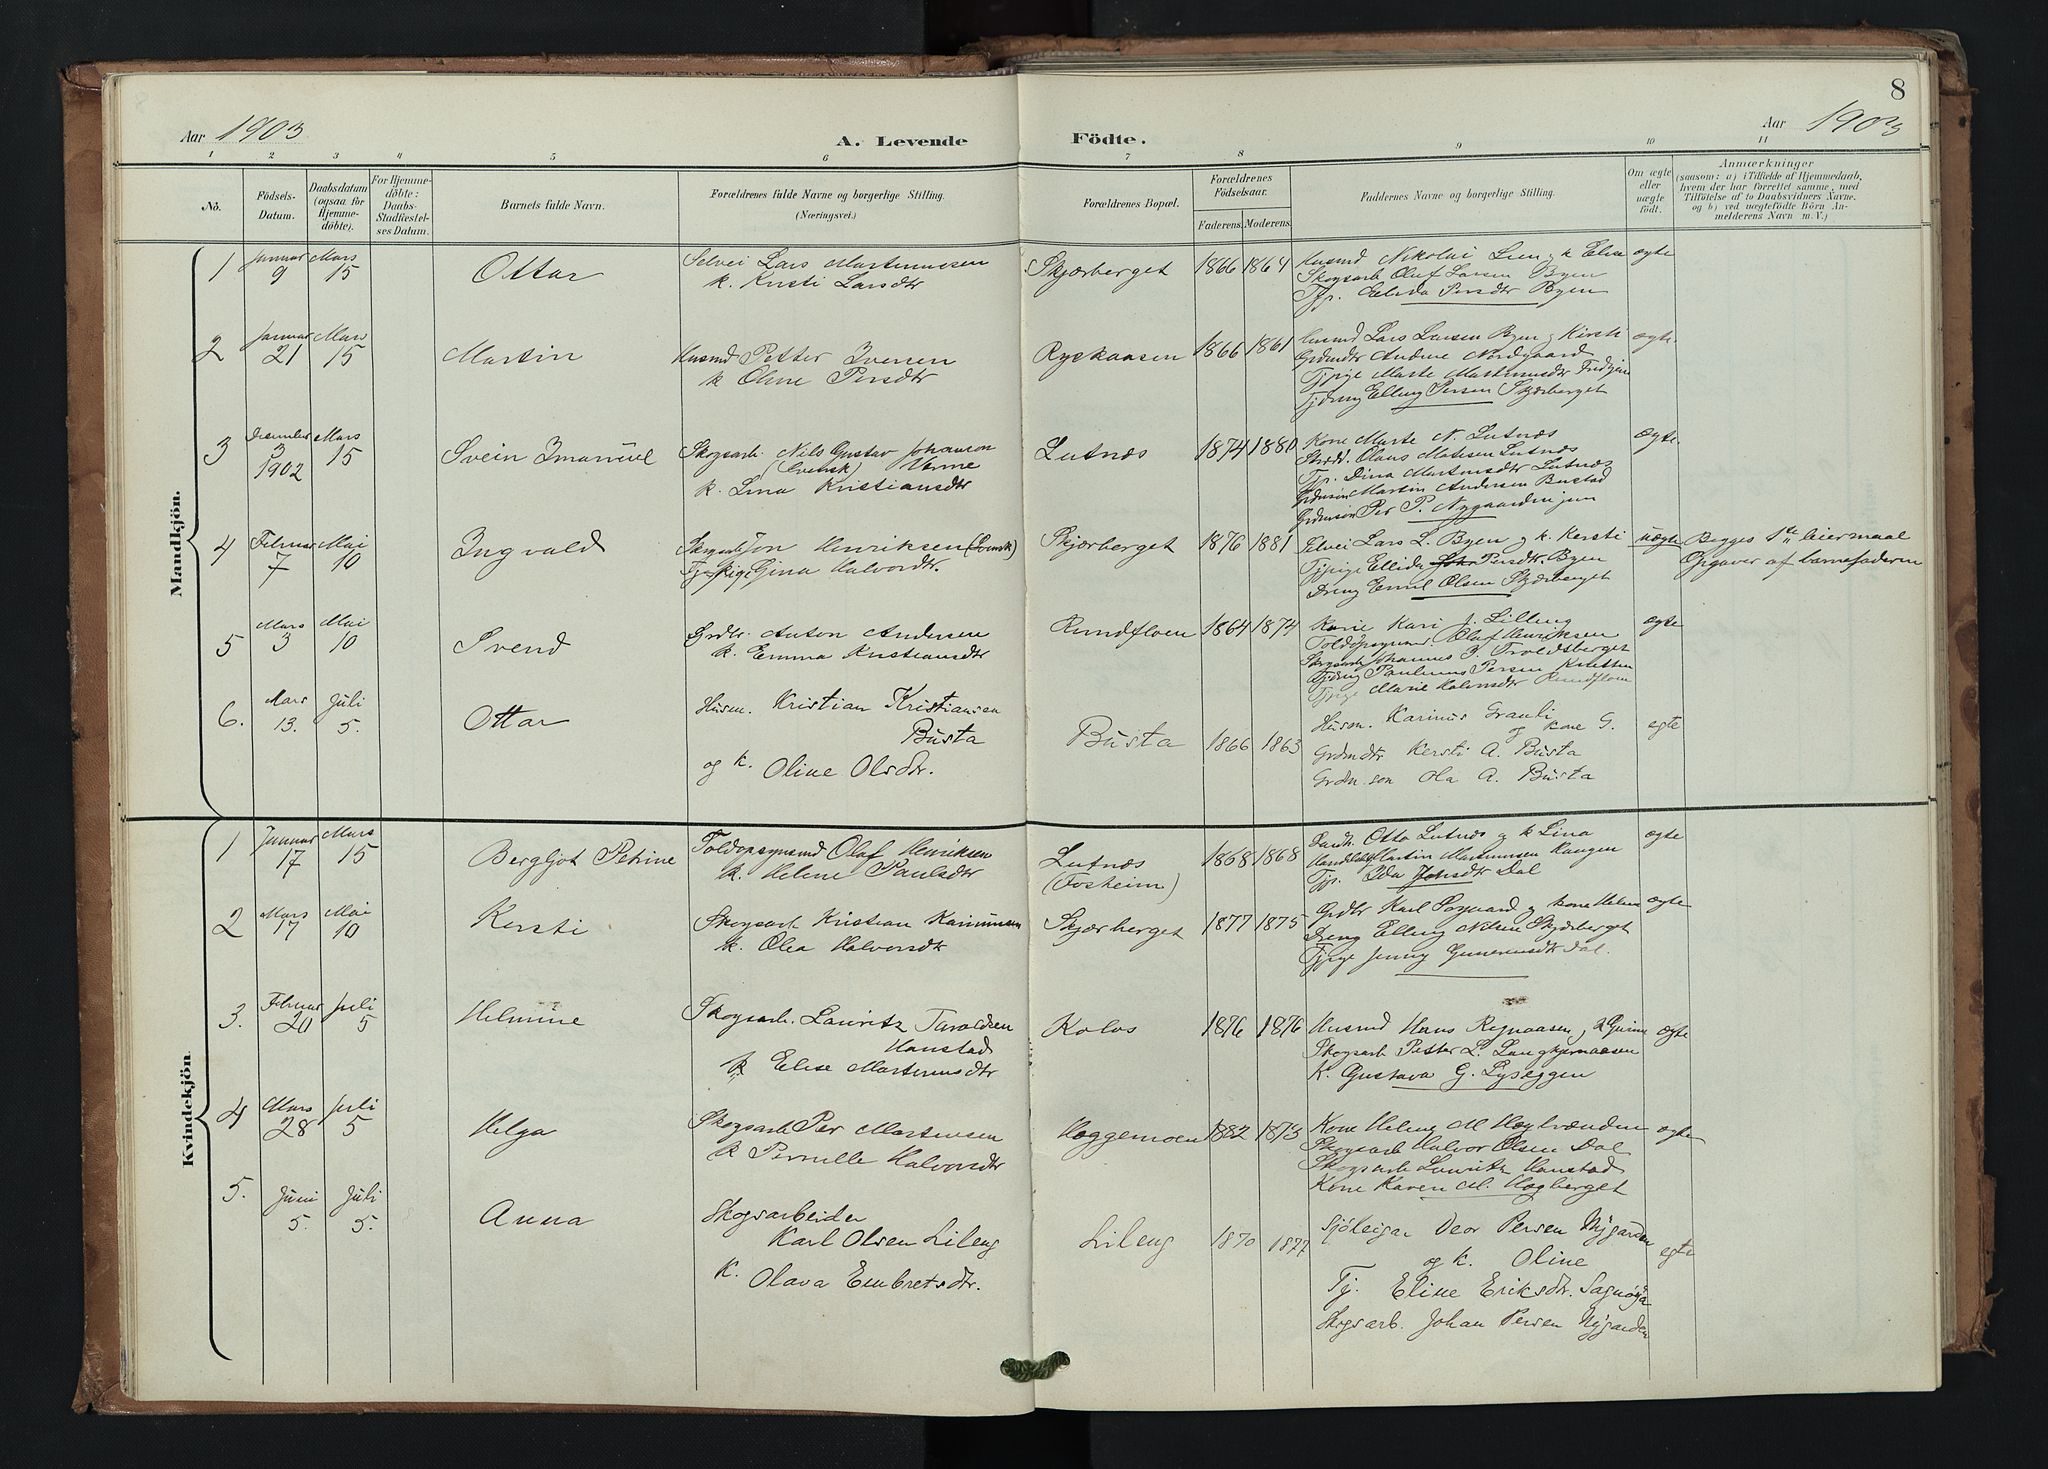 8
Aar 1903
A. Levende Födte.
Aar 1903
1 2 3 4 5 6 7 8 9 10 11
No.
Födsels-Datum.
Daabsdatum (ogsaa for Hjemmedöbte).
For Hjemmedöbte: Daabs-Stadfæstelses Datum.
Barnets fulde Navn.
Forældrenes fulde Navne og borgerlige Stilling. (Næringsvei.)
Forældrenes Bopæl.
Forældrenes Födselsaar.
Faderens. Moderens.
Faddernes Navne og borgerlige Stilling.
Om ægte eller uægte födt.
Anmærkninger
(saasom: a) i Tilfælde af Hjemmedaab, hvem der har forrettet samme, med Tilföielse af to Daabsvidners Navne, og b) ved uægtefödte Börn Anmelderens Navn m. V.)
Mandkjön.
1 Januar 9 Mars 15 Ottar Selvei Lars Martinusen
k. Kristi Larsdtr Skjærberget 1866 1864 Husmd Nikolai Lien og k Elise ægte
Skogsarb Oluf Larsen Byen
Tjp. Persdtr Byen
2 Januar 21 Mars 15 Martin Husmd Petter Iversen
k Oline Persdtr Ryskaasen 1866 1861 Husmd Lars Larsen Byen og Kirsti ægte
Grdmdtr Andrine Nordgaard
Tjpige Marte Martinusdtr
Tjdreng Elling Persen Skjærberget
3 December 3 1902 Mars 15 Svein Imanuel Skogsarb Nils Gustav Johanson
(Svensk)
k. Lina Kristiansdtr Lutnæs 1874 1880 Kone Marte N. Lutnæs ægte
Olaus Matisen Lutnæs
Tjp. Dina Martinusdtr Lutnæs
Grdmsön Martin Andersen Bustad
Grdmsön Per P. Nygaardmoen
4 Februar 7 Mai 10 Ingvald Skogsarb Jon Henriksen (Svensk)
Tjpige Gina Halvordtr. Skjærberget 1876 1881 Selvei Lars L. Byen og k. Kersti uægte Begges 1ste leiermaal
Tjpige Ellida Persdtr. Byen Opgaver af barnefaderen
Dreng Emil Olsen Skjærberget
5 Mars 3 Mai 10 Svend Grdbr. Anton Andersen
k. Emma Kristiansdtr Rundfloen 1864 1874 Kone Kari J. Lilleng ægte
Toldopsynsmd. Olaf Henriksen
Skogsarb Johannes P. Troldsberget
Tjdreng Paulinus Persen
Tjpige Marie Halvorsdtr Rundfloen
6. Mars 13. Juli 5. Ottar Husm. Kristian Kristiansen
Busta
og k. Oline Olsdtr. Busta 1866 1863 Husm. Karinus Grauli egte
og kone G.
Grdmdtr Kersti A. Busta
Grdm.son Ola A. Busta
Kvindekjön.
1 Januar 17 Mars 15 Bergljot Petrine Toldopsynsmd Olaf Henriksen
k. Helene Paulsdtr Lutnæs
(Fosheim) 1868 1868 Otto Lutnæs og k Lina ægte
Martin Martinusen Haugen
Tjp. Ida Johsdtr Dal
2 Mars 17 Mai 10 Kersti Skogsarb Kristian Karinusen
k. Olea Halvorsdtr Skjærberget 1877 1875 Grdbr Karl og kone Helene ægte
Dreng Elling Nilsen Skjærberget
Tjpige Jenny Gunerinusdtr Dal.
3. Februar 20 Juli 5 Helmine Skogsarb. Lauritz Taraldsen
Hanstad
k. Elise Martinusdtr Kolos 1876 1876 Husmd Hans Rysnaasen, og Gurine ægte
Skogsarb Petter L. Langkjernaasen
K. Gustava G. Lyseggen
4 Mars 28 Juli 5 Helga Skogsarb Per Martinsen
k Pernille Halvorsdtr Hæggemoen 1882 1873 Kone Helene M Hægbrænden ægte
Skogsarb Halvor Olsen Dal
Skogsarb Lauritz Hanstad
Kone Karen M. Hægberget
5. Juni 5. Juli 5. Anna Skogsarbeider
Karl Olsen Lileng
k. Olava Embretsdtr. Lileng 1870 1877 Sjöleigar Peder Persen Nygarden egte
og k. Oline
Tj. Eline Eriksdtr. Sagnöja
Skogsarb. Johan Persen Nygarden